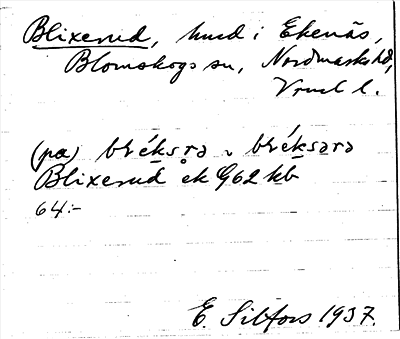 Blixerud, hmd i Ekenäs,
Blomskogs sn, Nordmarks hd,
Vrml l.
(pa) bréksra ~ bréksara
Blixerud ek G62 kb
64:-
E. Silfors 1937.